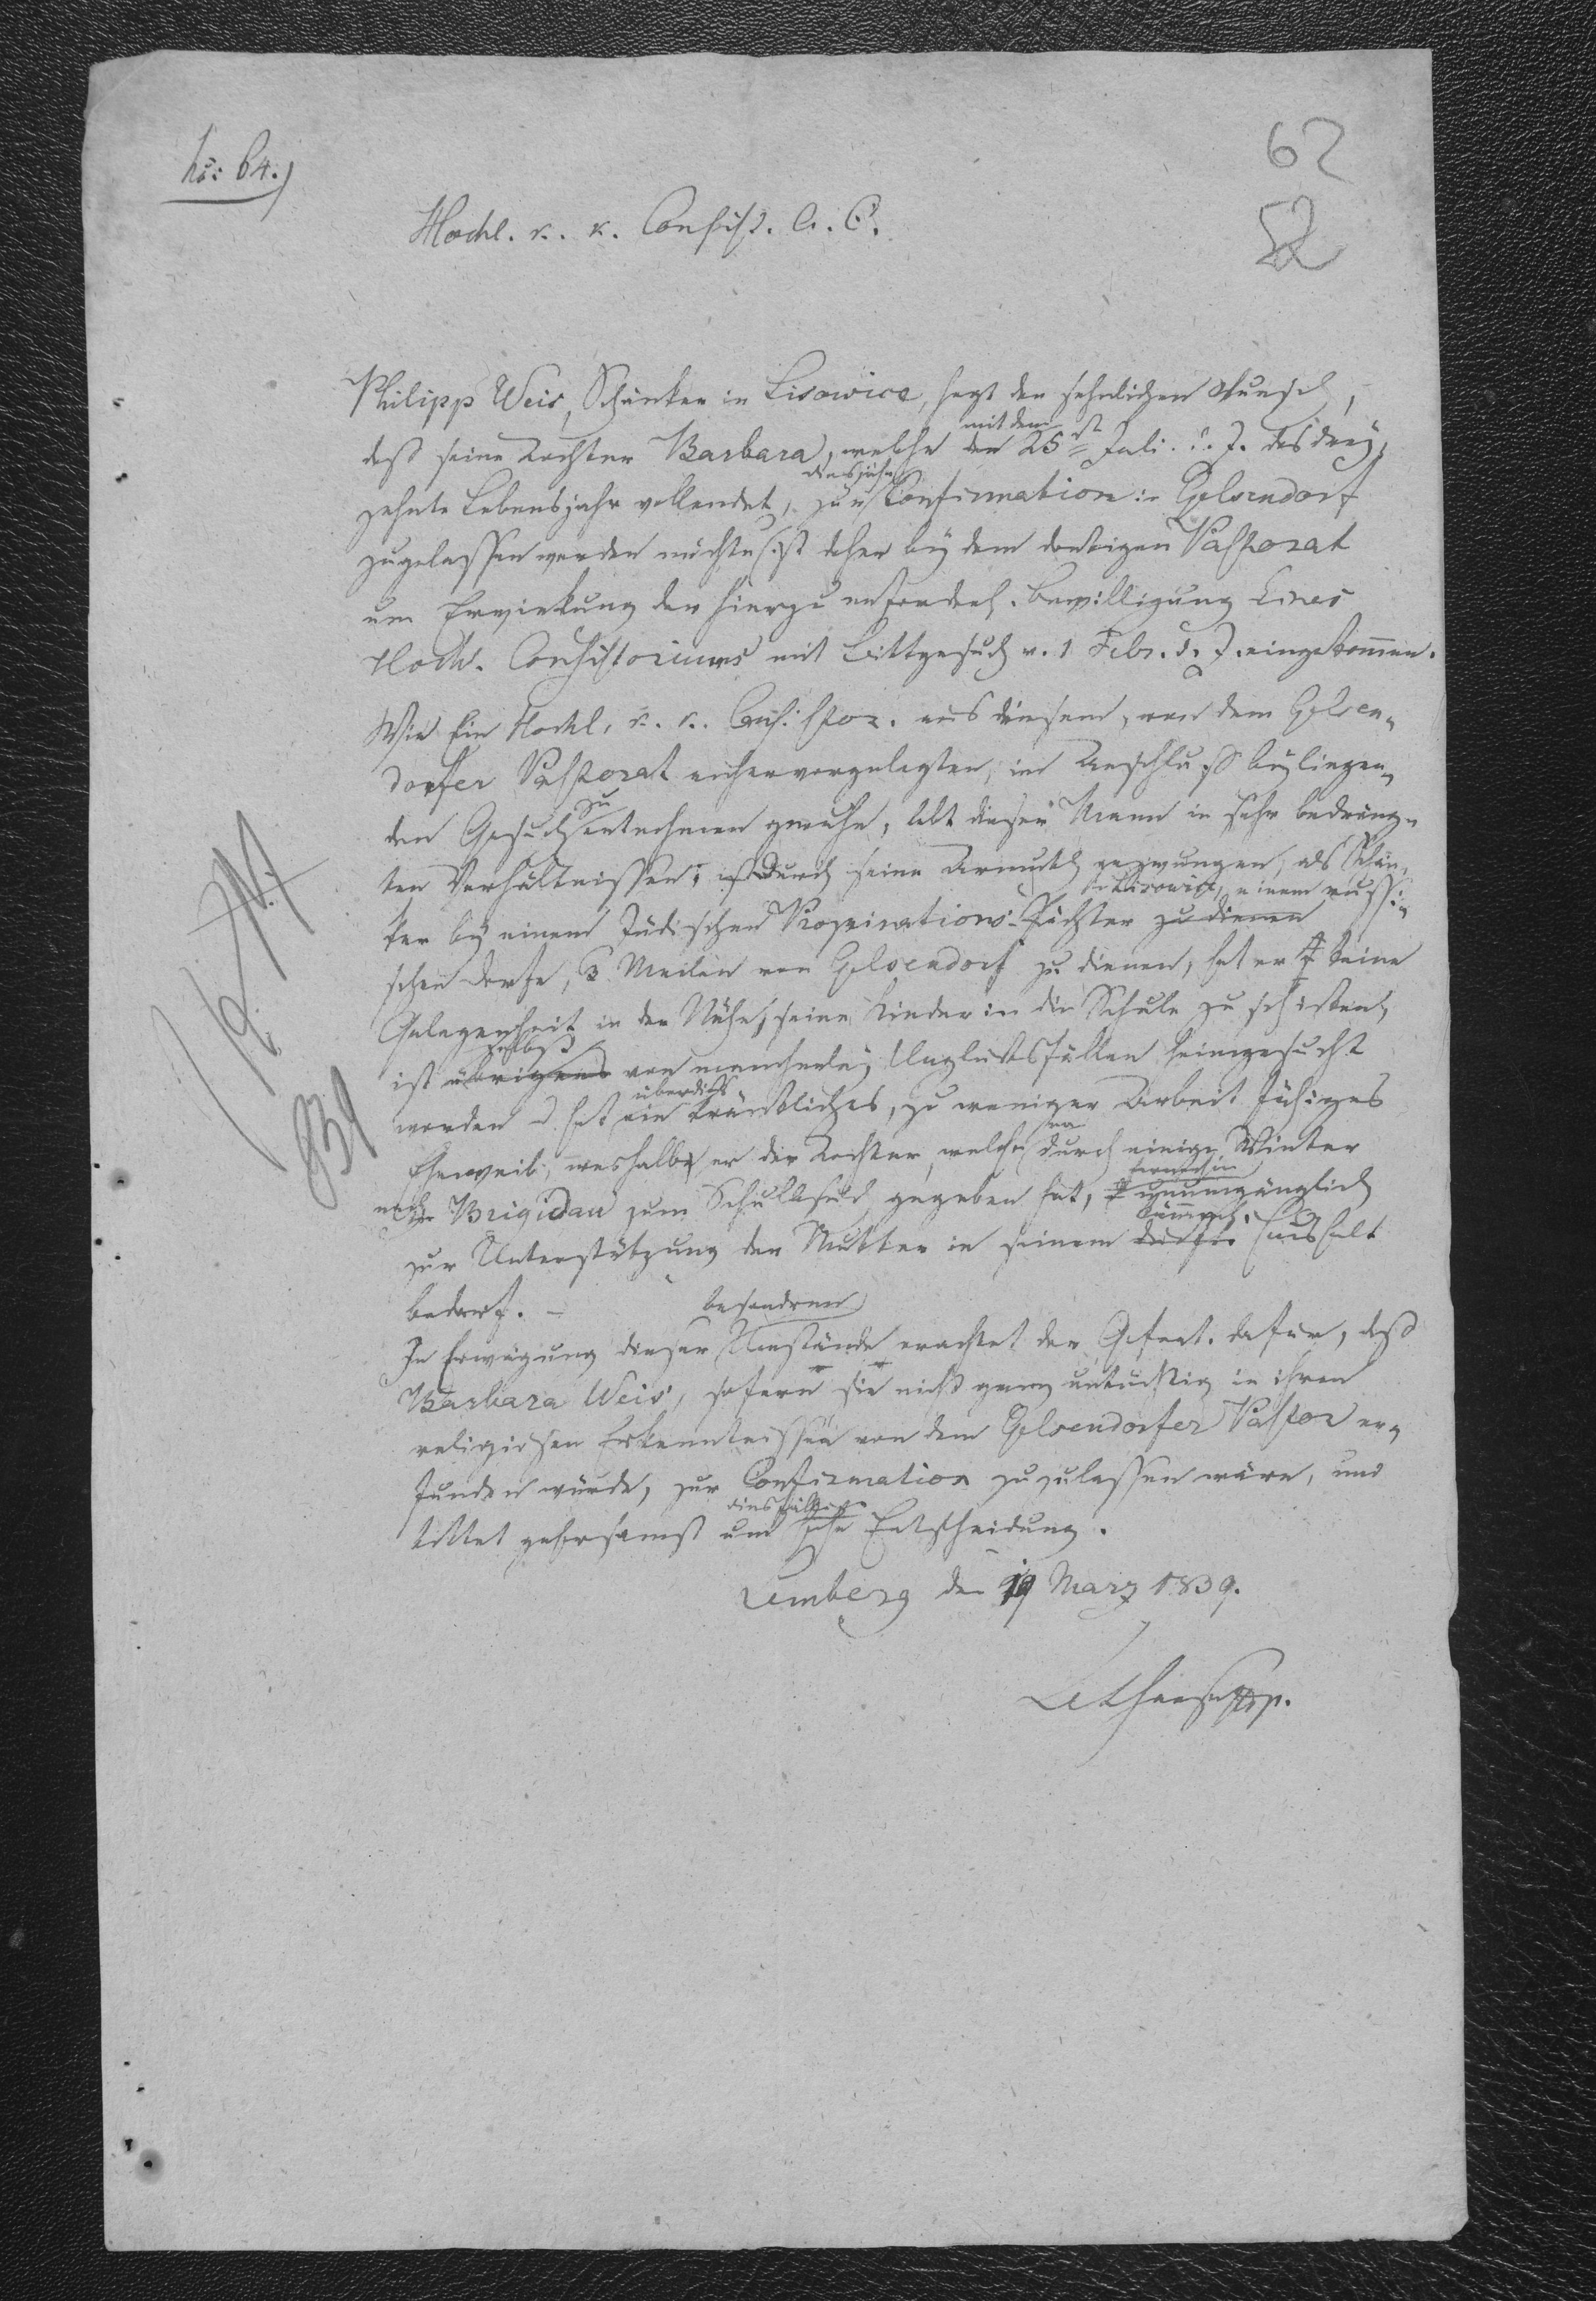 No: 64.)
62
52
Hochl. k. k. Consist. A. C.
Philipp Weis, Schänker in Lisowice, hegt den sehnlichen Wunsch,
daß seine Tochter Barbara, welche mit dem 25st Juli d. J. das drey-
zehnte Lebensjahr vollendet, diesjähr. zur Confirmation in Gelsendorf
zugelassen werden möchte, ist daher bey dem dortigen Pastorat
um Erwirkung der hierzu erforderl. Bewilligung Eines
Hochl. Consistoriums mit Bittgesuch v. 1 Febr. d. J. eingekommen.
Wie Ein Hochl. k. k. Consistor. aus diesem, von dem Gelsen-
dorfer Pastorat anher vorgelegten, im Anschluß beyliegen-
den Gesuch zu entnehmen geruhe, lebt dieser Mann in sehr bedräng-
ten Verhältnissen; durch seine Armuth gezwungen, als Schän-
ker bey einem Jüdischen Propinations-Pächter zu dienen
in Lisowice, einem russi-
schen Dorfe, 3 Meilen von Gelsendorf zu dienen, hat er keine
Gelegenheit in der Nähe, seine Kinder in die Schule zu schicken,
ist übrigens selbst von mancherley Unglücksfällen heimgesucht
worden u. hat überdieß ein kränkliches, zu weniger Arbeit fähiges
Eheweib, weshalb er der Tochter, welche er durch einige Winter
nach Brigidau zum Schulbesuch gegeben hat, fernerhin unumgänglich
zur Unterstützung der Mutter in seinem Haushalt
bedarf. –
In Erwägung dieser besondren Umstände erachtet der Gefert. dafür, daß
Barbara Weis, sofern sie nicht ganz untüchtig in ihren
religiösen Erkenntnissen von dem Gelsendorfer Pastor er-
funden würde, zur Confirmation zuzulassen wäre, und
bittet gehorsamst um diesfällige hohe Entscheidung.
Lemberg den 19 März 1839.
831